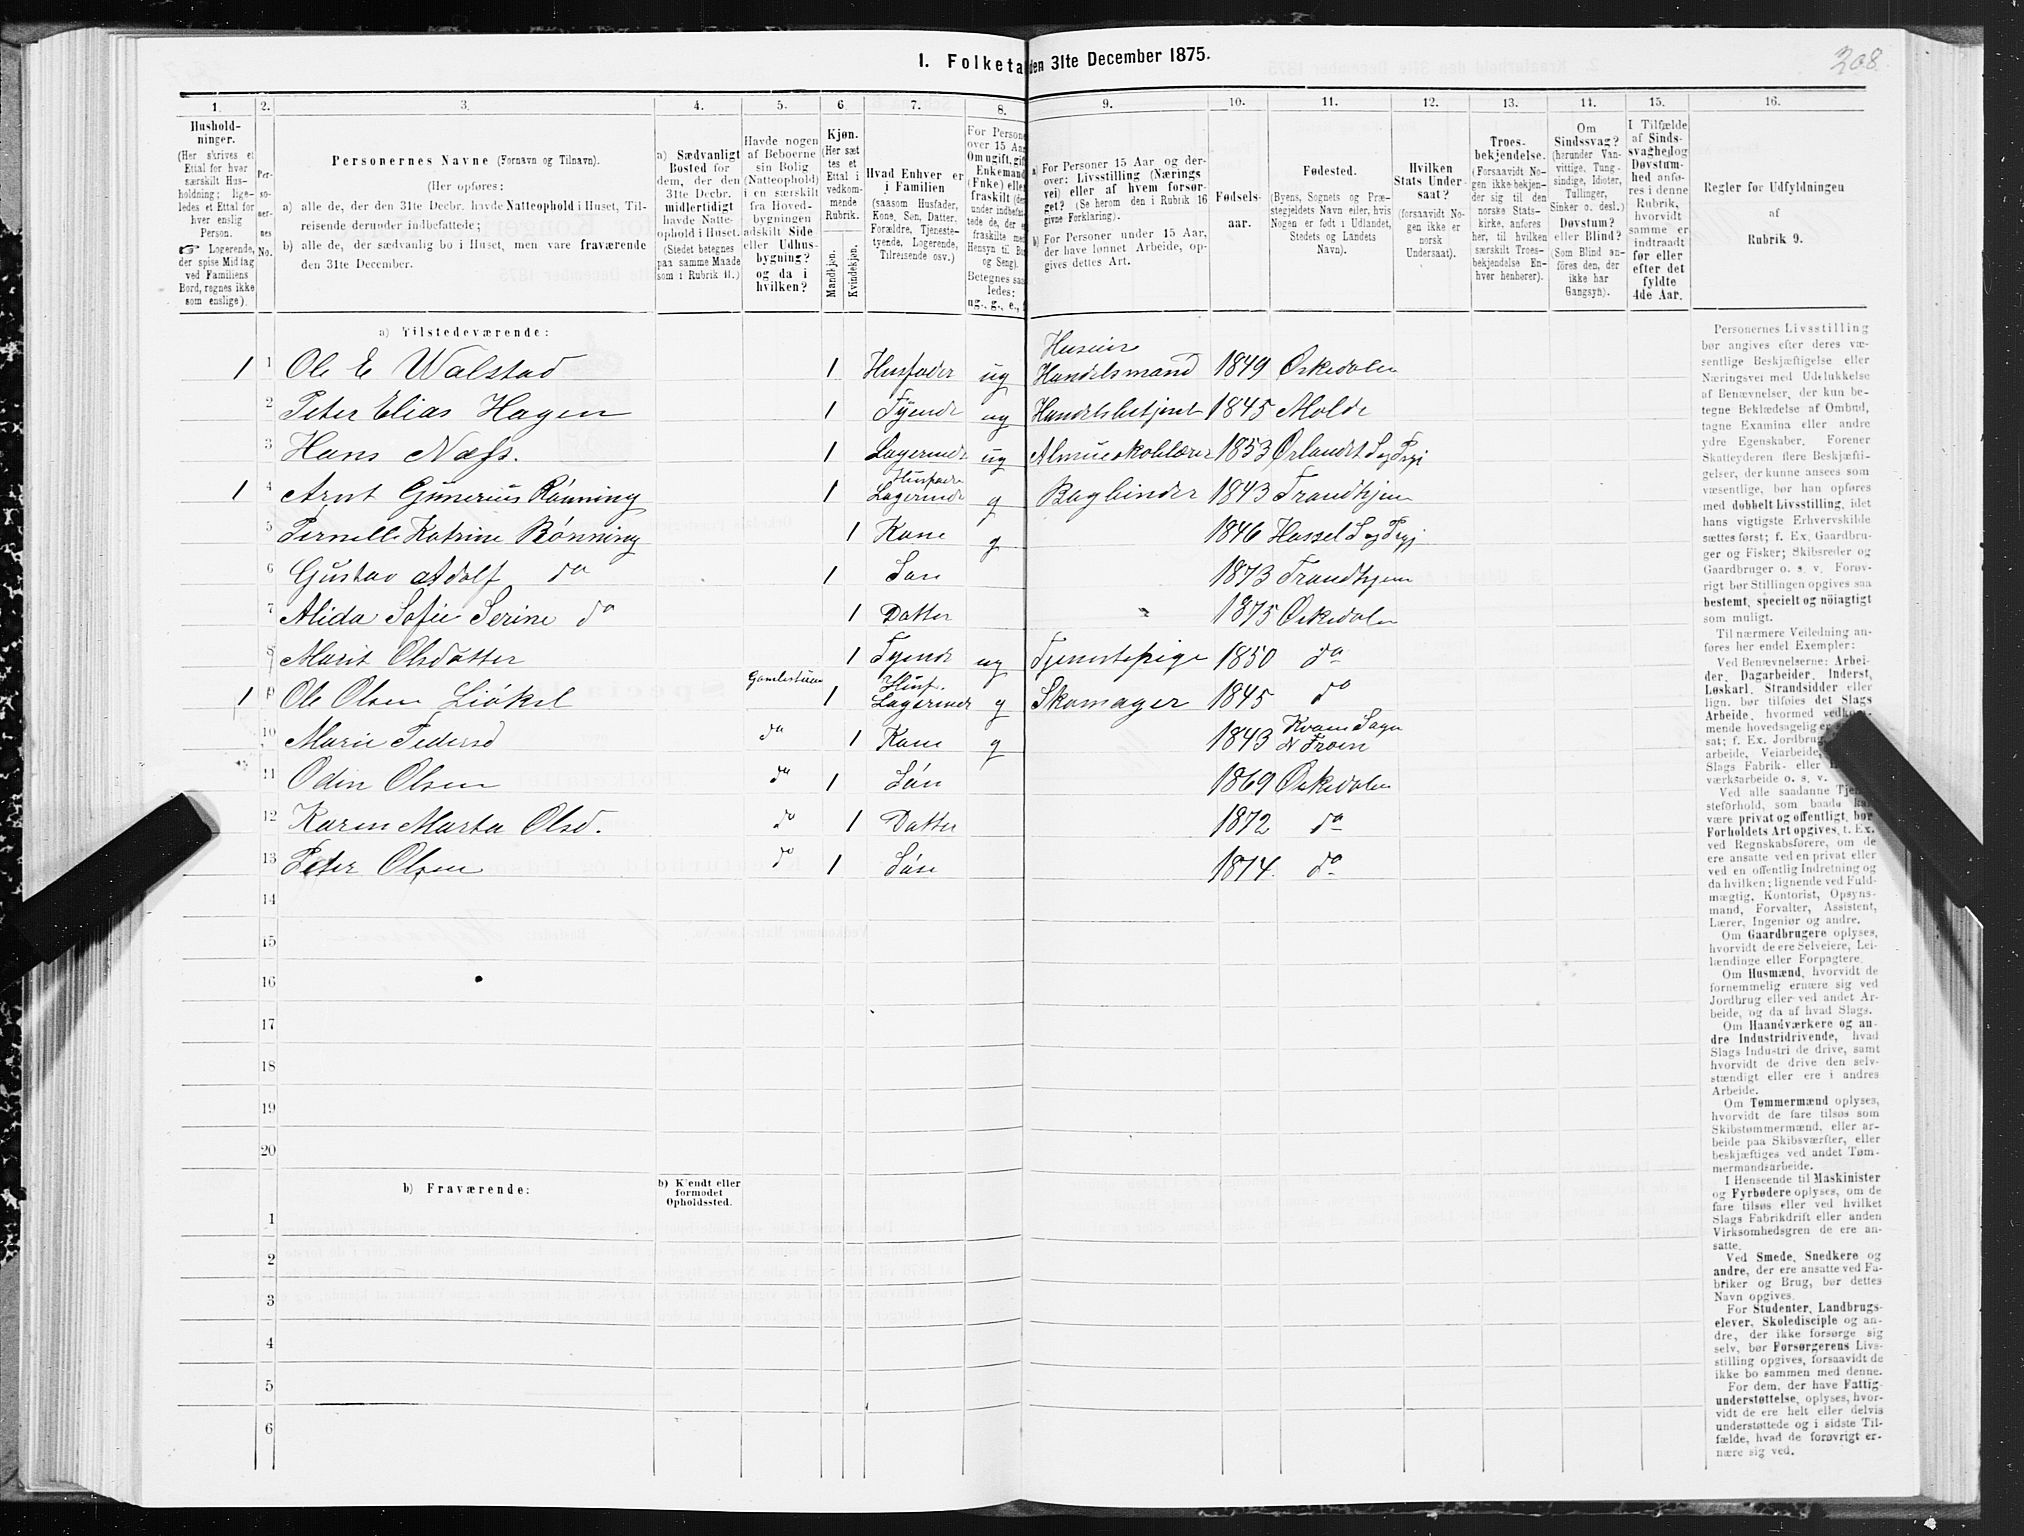 I. Folketal den 31te December 1875.
308
1. 2. 3. 4. 5. 6 7. 8. 9. 10. 11. 12. 13. 14. 15. 16.
Hushold-
ninger.
(Her skrives et
Ettal for hver
særskilt Hus-
holdning; lige-
ledes et Ettal for
hver enslig
Person.
☞ Logerende,
der spise Middag
ved Familiens
Bord, regnes ikke
som enslige).
Per-
so-
ner-
nes
No.
Personernes Navne (Fornavn og Tilnavn).
(Her opføres:
a) alle de, der den 31te Decbr. havde Natteophold i Huset, Til-
reisende derunder indbefattede;
b) alle de, der sædvanlig bo i Huset, men vare fraværende
den 31te December.
a) Sædvanligt
Bosted for
dem, der den
31te Decbr.
midlertidigt
havde Natte-
ophold i Huset.
(Stedet betegnes
paa samme Maade
som i Rubrik 11.)
Havde nogen
af Beboerne
sin Bolig
(Natteophold)
i en særskilt
fra Hoved-
bygningen
adskilt Side
eller Udhus-
bygning?
og da i
hvilken?
Kjøn.
(Her sæt
tes et
Ettal i
vedkom-
mende
Rubrik.
Mandkjøn.
Kvindekjøn.
Hvad Enhver er
i Familien
(saasom Husfader,
Kone, Søn, Datter,
Forældre, Tjeneste-
tyende, Logerende,
Tilreisende osv.)
For Personer
over 15 Aar
Om ugift, gift,
Enkemand
(Enke) eller
fraskilt
Betegnes saa-
ledes:
ug., g., e., f.
a) For Personer 15 Aar og der-
over: Livsstilling (Nærings
vei) eller af hvem forsør-
get? (Se herom den i Rubrik 16
givne Forklaring).
b) For Personer under 15 Aar,
der have lønnet Arbeide, op-
gives dettes Art.
Fødsels-
aar.
Fødested.
(Byens, Sognets og Præ-
stegjeldets Navn eller, hvis
Nogen er født i Udlandet,
Stedets og Landets
Navn).
Hvilken
Stats Under-
saat?
(forsaavidt No-
gen ikke er
norsk
Undersaat).
Troes-
bekjendelse.
(Forsaavidt No-
gen ikke bekjen-
der sig til den
norske Stats-
kirke, anføres
her, til hvilken
særskilt Troes-
bekjendelse En-
hver henhører).
Om
Sindssvag?
(herunder Van-
vittige, Tung-
sindige, Idioter,
Tullinger,
Sinker o. desl.)
Døvstum?
eller Blind?
(Som Blind an-
føres den, der
ikke har
Gangsyn).
I Tilfælde
af Sinds-
svaghed og
Døvstum-
hed anfø-
res i denne
Rubrik,
hvorvidt
samme er
indtraadt
før eller
efter det
fyldte
4de Aar.
Regler for Udfyldningen
af
Rubrik 9.
a) Tilstedeværende:
1 1 Ole E Walstad 1 Husfader ug Huseier Handelsmand 1849 Ørkedalen
2 Peter Elias Hagen 1 Tyende ug Handelsbetjent 1845 Molde
3 Hans Næss. 1 Logerende ug Almueskolelærer 1853 Ørlandet S og Prgj
1 4 Arnt Gunerius Rønning 1 Husfader Logerende g Bogbinder 1843 Trondhjem
5 Pernelle Katrine Rønning 1 Kone g 1846 Hassel S og Prgj
6 Gustav Adolf do 1 Søn 1873 Trondhjem
7 Alida Sofie Serine do 1 Datter 1875 Ørkedalen
8 Marit Olsdatter 1 Tyende ug Tjenestepige 1850 do
1 9 Ole Olsen Liøkel Gamlestuen 1 Husf. Logerende g Skomager 1845 do
10 Marie Pedersd do 1 Kone g 1843 Kvam Sogn
11 Odin Olsen do 1 Søn 1869 Ørkedalen
12 Karen Marta Olsd. do 1 Datter 1872 do
13 Peter Olsen do 1 Søn 1874. do
14
15
16
17
18
19
20
b) Fraværende:
b) Kjendt eller
formodet
Opholdssted.
1
2
3
4
5
6
Personernes Livsstilling
bør angives efter deres væ-
sentlige Beskjæftigelse eller
Næringsvei med Udelukkelse
af Benævnelser, der kun be-
tegne Beklædelse af Ombud,
tagne Examina eller andre
ydre Egenskaber. Forener
Skatteyderen flere Beskjæfti-
gelser, der kunne ansees som
væsentlige, bør han opføres
med dobbelt Livsstilling, idet
hans vigtigste Erhvervskilde
sættes først; f. Ex. Gaardbru-
ger og Fisker; Skibsreder og
Gaardbruger o. s. v. Forøv-
rigt bør Stillingen opgives saa
bestemt, specielt og nöiagtigt
som muligt.
Til nærmere Veiledning an-
føres her endel Exempler:
Ved Benævnelserne: Arbei-
der, Dagarbeider, Inderst,
Løskarl, Strandsidder eller
lign. bør tilføies det Slags
Arbeide, hvormed vedkom-
mende hovedsagelig er
sat; f. Ex. Jordbrug
arbeide, Veiarbeide,
Slags Fabrik- eller
værksarbeide o. s. v.
Ved alle saadanne Tjene-
steforhold, som baade kan
være privat og offentligt, bør
Forholdets Art opgives, t. Ex.
ved Regnskabsførere, om de
ere ansatte ved en privat eller
ved en offentlig Indretning og
da hvilken; lignende ved Fuld-
mægtig, Kontorist, Opsyns-
mand, Forvalter, Assistent,
Lærer, Ingeniør og andre.
Om Gaardbrugere oplyses,
hvorvidt de ere Selveiere, Lei-
lændinge eller Forpagtere.
Om Husmænd, hvorvidt de
fornemmelig ernære sig ved
Jordbrug eller ved andet Ar-
beide, og da af hvad Slags.
Om Haandværkere og an-
dre Industridrivende, hvad
Slags Industri de drive, samt
hvorvidt de drive den selv-
stændigt eller ere i andres
Arbeide.
Om Tømmermænd oplyses,
hvorvidt de fare tilsøs som
Skibstømmermænd, eller ar-
beide paa Skibsværfter, eller
beskjæftiges ved andet Tøm-
mermandsarbeide.
I Henseende til Maskinister
og Fyrbødere oplyses, om de
fare tilsøs eller ved hvilket
Slags Fabrikdrift eller anden
Virksomhedsgren de ere an-
satte.
Ved Smede, Snedkere og
andre, der ere ansatte ved Fa-
briker og Brug, bør dettes
Navn opgives.
For Studenter, Landbrugs-
elever, Skoledisciple og an-
dre, der ikke forsørge sig
selv, bør Forsørgerens Livs-
stilling opgives, forsaavidt de
ikke bo sammen med denne.
For dem, der have Fattig-
understøttelse, oplyses, hvor-
vidt de ere helt eller delvis
understøttede og i sidste Til-
fælde, hvad de forøvrigt er-
nære sig ved.